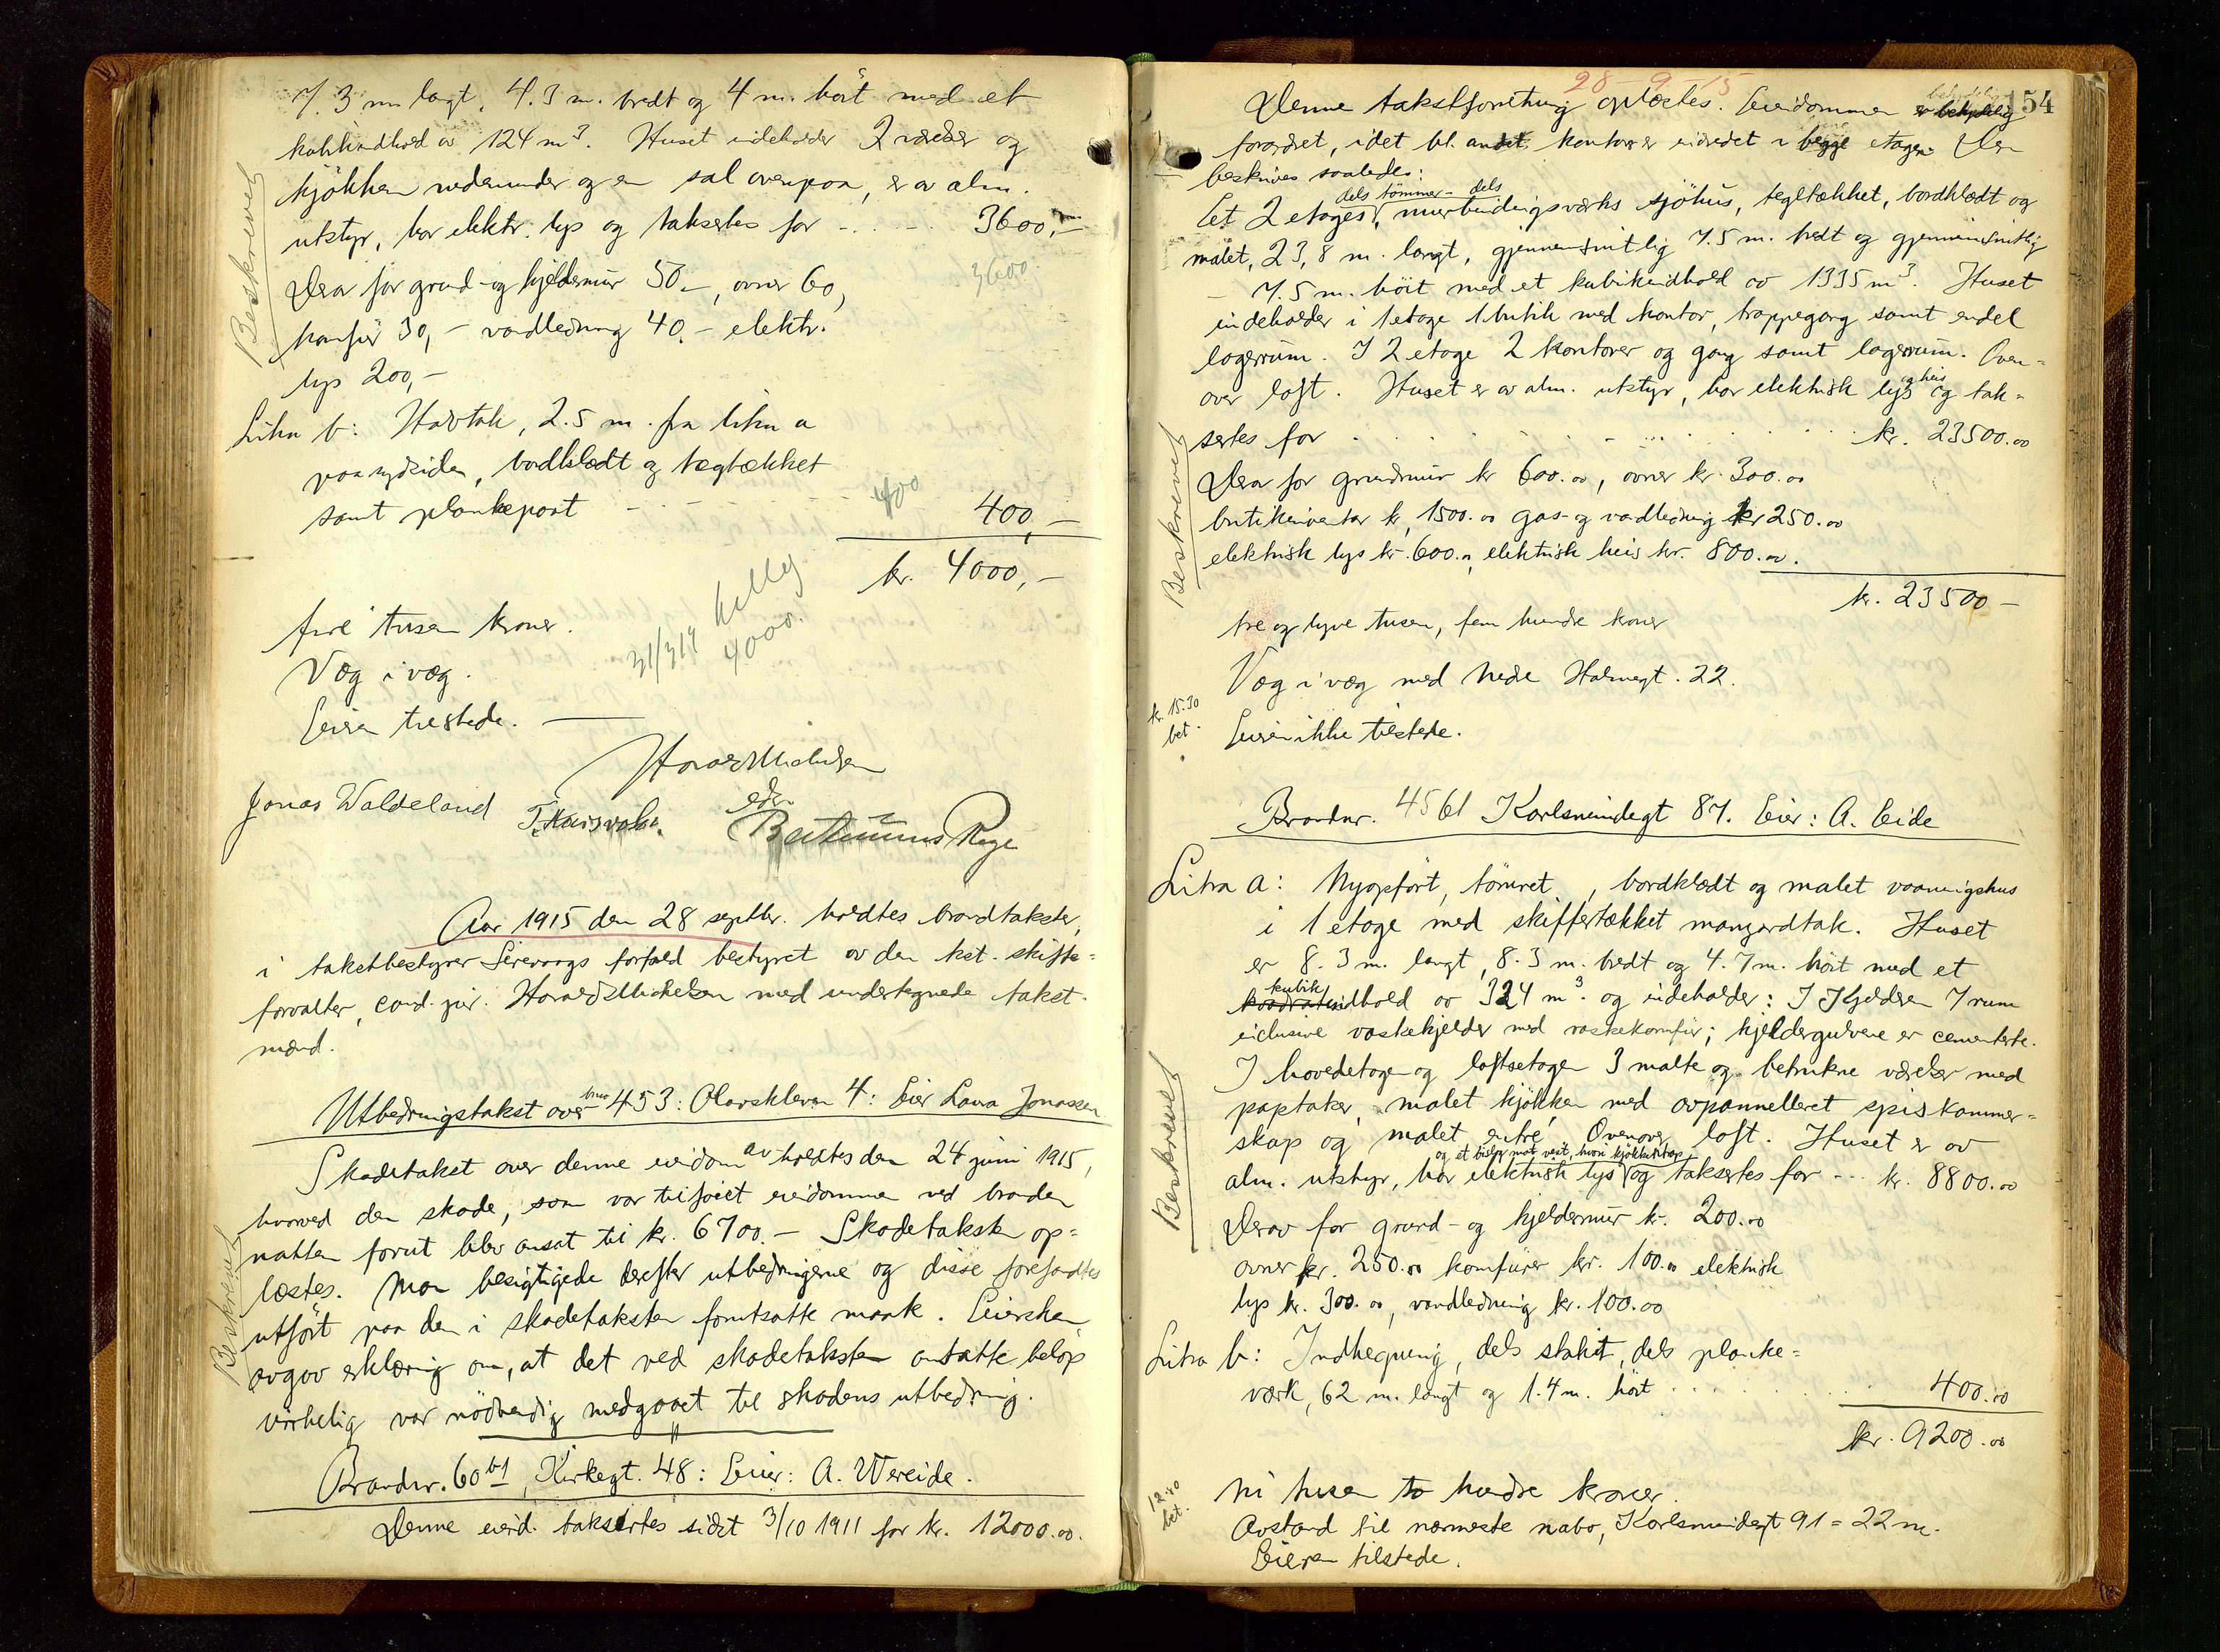 7.3 m langt, 4.3 m. bredt og 4 m. høit med et
kubikindhold av 124 m³. Huset indeholder 2 værelser og
kjøkken nedenunder og en sal ovenpaa, er av alm.
utstyr, har elektr. lys og takseres for - . . - . 3600,-
3600.
Derav for grund- og kjeldermur 50.-, ovner 60,
komfur 30,- vandledning 40.- elektr.
lys 200,-
Beskrevet
Litra b: Halvtak, 2.5 m. fra litra a
paa sydsiden, bordklædt og tegltækket
samt plankeport - . - . 400 400,-
kr. 4000,-
fire tusen kroner.
31/3 19 4000.
Væg i væg.
Eieren tilstede.
Harald Michelsen
Jonas Waldeland
edv. Berthinius Rege
Aar 1915 den 28 septbr. holdtes brandtakster,
i takstbestyrer Sirevaags forfald bestyret av den kst. skifte=
forvalter, cand. jur. Harald Michelsen med undertegnede takst-
mænd.
Utbedringstakst over brnr 453: Olavskleven 4: Eier Laura Jonassen
Skadetakst over denne eiendom avholdtes den 24 juni 1915,
hvorved den skade, som var tilføiet eiendommen ved branden
natten forut blev ansat til kr. 6700.- Skadetaksten op=
læstes. Man besigtigede derefter utbedringerne og disse forefandtes
utført paa den i skadetaksten forutsatte maate. Eiersken
avgav erklæring om, at det ved skadetaksten ansatte beløp
virkelig var nødvendig medgaaet til skadens utbedring.
Beskrevet
Brandnr. 60 b1, Kirkegt. 48: Eier: A. Wereide.
Denne eiend. takseertes sidst 3/10 1911 for kr. 12000.00.
28-9-15
154
Denne takstforretning oplæstes. Eiendommen er betydelig
forandret, idet bl. andet kontorer er indredet i begge etager. Den
beskrives saaledes:
Et 2 etages, dels tømmer- dels murbindingsverks sjøhus, tegltækket, bordklædt og
malet, 23,8 m. langt, gjennemsnitlig 7.5 m. bredt og gjennemsnitlig
- 7.5 m. høit med et kubikindhold av 1335 m³. Huset
indeholder i 1 etage 1 butik med kontor, trappegang samt endel
lagerrum. I 2 etage 2 kontorer og gang samt lagerrum. Oven=
over loft. Huset er av alm. utstyr, har elektrisk lys og heis og tak=
seres for . . . . . kr. 23500.00
Derav for grundmur kr 600.00, ovner kr. 300.00
butikinventar kr, 1500.00 gas- og vandledning kr 250.00
elektrisk lys kr. 600.00, elektrisk heis kr. 800.00.
Beskrevet
kr. 23500 -
tre og tyve tusen, fem hundre kroner
Væg i væg med Nedre Holmegt. 22.
kr. 15.30
bet.
Eieren ikke tilstede.
Brandnr. 4561 Karlsmindegt 87. Eier: A. Eide
Litra a: Nyopført, tømret, bordklædt og malet vaaningshus
i 1 etage med skiffertækket mansardtak. Huset
er 8.3 m. langt, 8.3 m. bredt og 4.7 m. høit med et
kvadrat kubikindhold av 324 m³. og indeholder: I Kjelderen 7 rum
inclusive vaskekjelder med vaskekomfur; kjeldergulvene er cementerte.
I hovedetagen og loftsetagen 3 malte og betrukne værelser med
paptaker, malet kjøkken med avpannelleret spiskammer=
skap og malet entré. Ovenover loft. Huset er av
alm. utstyr, har elektrisk lys og et bislag mot vest, hvori kjøkkentrap, og takseres for --- kr. 8800.00
Derav for grund- og kjeldermur kr. 200.00
ovner kr. 250.00 komfurer kr. 100.00 elektrisk
lys kr. 300.00, vandledning kr. 100.00
Beskrevet
Litra b: Indhegning, dels stakit, dels planke=
værk, 62 m. langt og 1.4 m. høit . . . . 400.00
kr. 9200.00
ni tusen to hundre kroner.
12.80
bet.
Avstand til nærmeste nabo, Karlsmindegt 91 = 22 m.
Eieren tilstede.